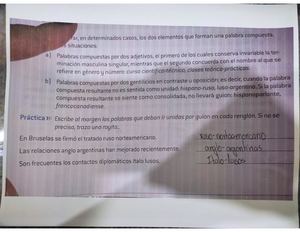 ar, en determinados casos, los dos elementos que forman una palabra compuesta.
s situaciones:
a) Palabras compuestas por dos adjetivos, el primero de los cuales conserva invariable la ter-
minación masculina singular, mientras que el segundo concuerda con el nombre al que se
refiere en género y número: curso científico-técnico, clases teórico-prácticas.
b) Palabras compuestas por dos gentilicios en contraste u oposición; es decir, cuando la palabra
compuesta resultante no es sentida como unidad: hispano-ruso, luso-argentino. Si la palabra
compuesta resultante se siente como consolidada, no llevará guion: hispanoparlante,
francocanadiense.
Práctica Escribe al margen las palabras que deben ir unidas por guion en cada renglón. Si no se
precisa, traza una rayita.
En Bruselas se firmó el tratado ruso norteamericano. ruso-norteamericano
Las relaciones anglo argentinas han mejorado recientemente. anglo-argentinas
Son frecuentes los contactos diplomáticos ítalo lusos. Italo-lusos